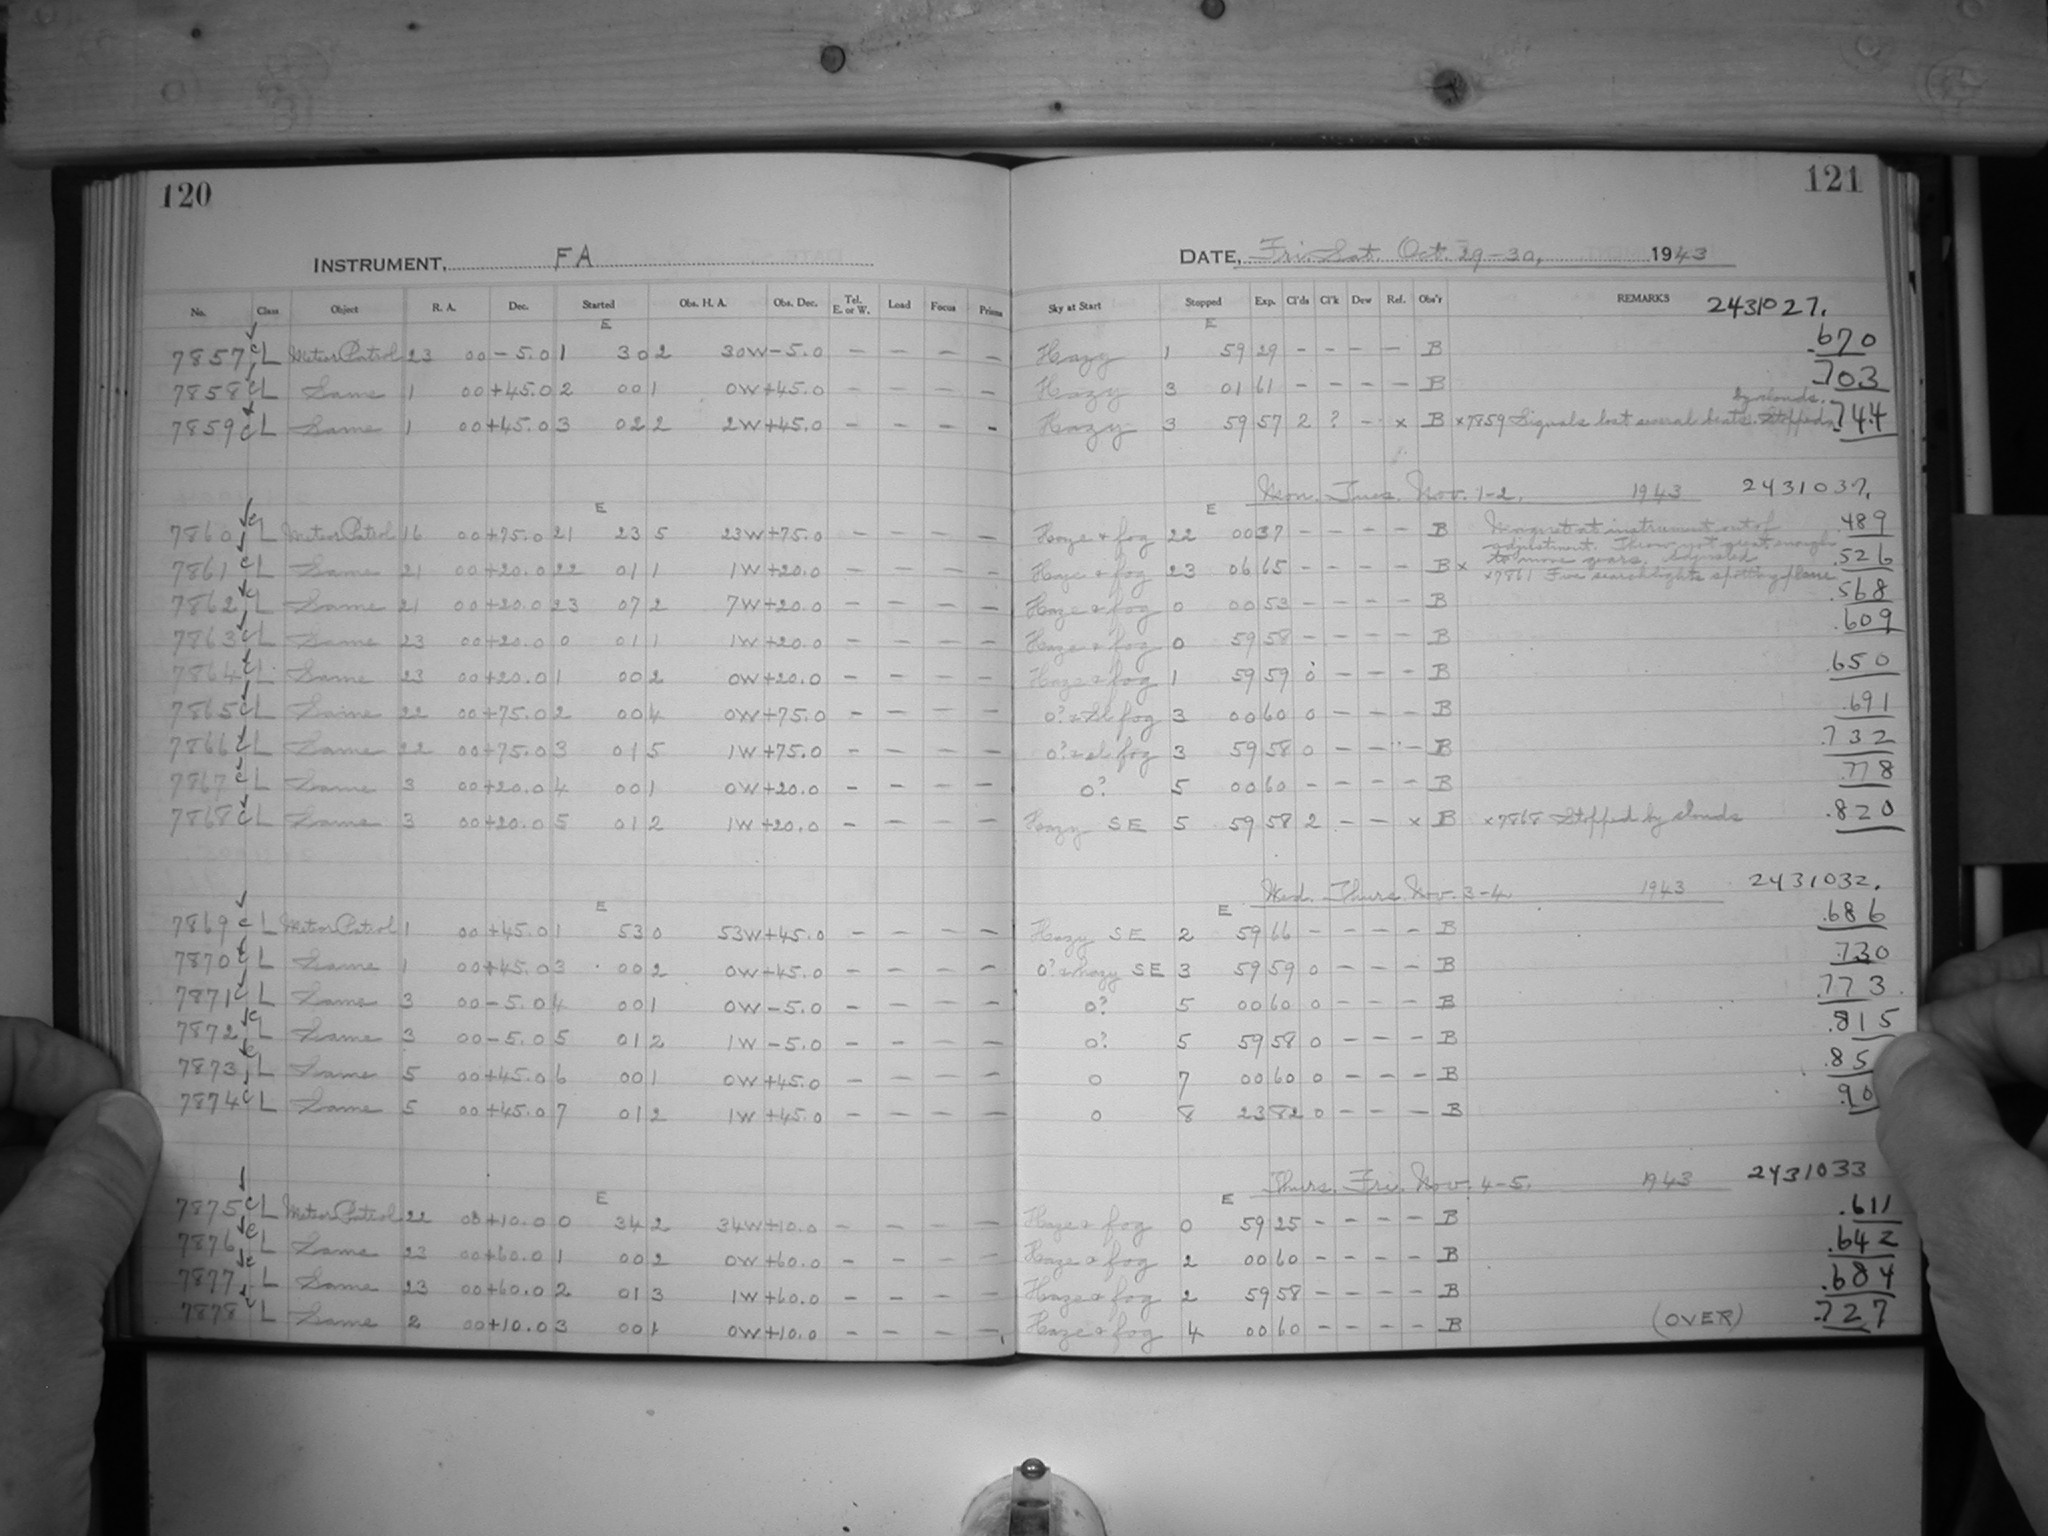 120
INSTRUMENT, FA
No. Class Object R. A. Dec. Started Obs. H. A. Obs. Dec. Tel. E. or W. Load Focus Prisms
E
7857 c L Meteor Patrol 23 00 -5.0 1 30 2 30W -5.0 - - - -
7858 c L Same 1 00 +45.0 2 00 1 0W +45.0 - - - -
7859 c L Same 1 00 +45.0 3 02 2 2W +45.0 - - - -
E
7860 c L Meteor Patrol 16 00 +75.0 21 23 5 23W +75.0 - - - -
7861 c L Same 21 00 +20.0 22 01 1 1W +20.0 - - - -
7862 c L Same 21 00 +20.0 23 07 2 7W +20.0 - - - -
7863 c L Same 23 00 +20.0 0 01 1 1W +20.0 - - - -
7864 c L Same 23 00 +20.0 1 00 2 0W +20.0 - - - -
7865 c L Same 22 00 +75.0 2 00 4 0W +75.0 - - - -
7866 c L Same 22 00 +75.0 3 01 5 1W +75.0 - - - -
7867 c L Same 3 00 +20.0 4 00 1 0W +20.0 - - - -
7868 c L Same 3 00 +20.0 5 01 2 1W +20.0 - - - -
E
7869 c L Meteor Patrol 1 00 +45.0 1 53 0 53W +45.0 - - - -
7870 c L Same 1 00 +45.0 3 00 2 0W +45.0 - - - -
7871 c L Same 3 00 -5.0 4 00 1 0W -5.0 - - - -
7872 c L Same 3 00 -5.0 5 01 2 1W -5.0 - - - -
7873 c L Same 5 00 +45.0 6 00 1 0W +45.0 - - - -
7874 c L Same 5 00 +45.0 7 01 2 1W +45.0 - - - -
E
7875 c L Meteor Patrol 22 00 +10.0 0 34 2 34W +10.0 - - - -
7876 c L Same 23 00 +60.0 1 00 2 0W +60.0 - - - -
7877 c L Same 23 00 +60.0 2 01 3 1W +60.0 - - - -
7878 c L Same 2 00 +10.0 3 00 1 0W +10.0 - - - -
121
DATE, Fri. Sat. Oct. 29-30, 1943
Sky at Start Stopped Exp. Cl'ds Cl'k Dew Ref. Obs'r REMARKS 2431027.
E
Hazy 1 59 29 - - - - B .670
Hazy 3 01 61 - - - - B .703
by clouds.
Hazy 3 59 57 2 ? - x B x7859 Signals lost several beats. Stopped .744
Mon. Tues. Nov. 1-2, 1943 2431037.
E
Haze & fog 22 00 37 - - - - B instrument out of .489
adjustment. Throw not great enough
Haze & fog 23 06 65 - - - - B x to move gears. Adjusted. .526
x7861 Five searchlights spotting plane
Haze & fog 0 00 53 - - - - B .568
Haze & fog 0 59 58 - - - - B .609
Haze & fog 1 59 59 0 - - - B .650
0? & sl fog 3 00 60 0 - - - B .691
0? & sl fog 3 59 58 0 - - - B .732
0? 5 00 60 - - - - B .778
Hazy SE 5 59 58 2 - - x B x7868 Stopped by clouds .820
Wed. Thurs. Nov. 3-4 1943 2431032.
E
Hazy SE 2 59 66 - - - - B .686
0? & hazy SE 3 59 59 0 - - - B .730
0? 5 00 60 0 - - - B .773
0? 5 59 58 0 - - - B .815
0 7 00 60 0 - - - B .85
0 8 23 82 0 - - - B .90
Thurs. Fri. Nov. 4-5, 1943 2431033
E
Haze & fog 0 59 25 - - - - B .611
Haze & fog 2 00 60 - - - - B .642
Haze & fog 2 59 58 - - - - B .684
Haze & fog 4 00 60 - - - - B (OVER) .727